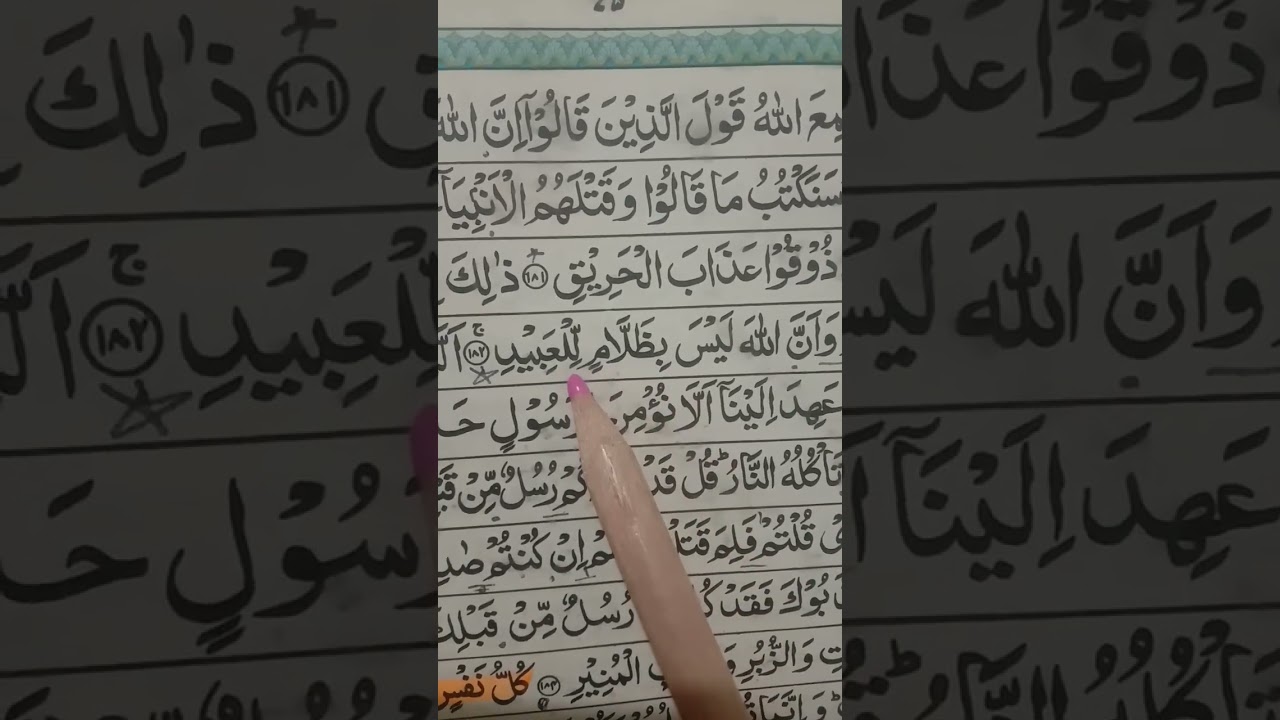 مِعَ اللّٰهُ قَوْلَ الَّذِيْنَ قَالُوْٓا اِنَّ اللّٰهَ
سَنَكْتُبُ مَا قَالُوْا وَقَتْلَهُمُ الْاَنْۢبِيَآءَ
ذُوْقُوْا عَذَابَ الْحَرِيْقِ ۱۸۱ ذٰلِكَ
وَاَنَّ اللّٰهَ لَيْسَ بِظَلَّامٍ لِّلْعَبِيْدِ ۚ ۱۸۲ اَلَّ
عَهِدَ اِلَيْنَآ اَلَّا نُؤْمِنَ رَسُوْلٍ حَ
تَاْكُلُهُ النَّارُ ؕ قُلْ قَدْ كُمْ رُسُلٌ مِّنْ قَبْ
قُلْتُمْ فَلِمَ قَتَلْ مْ اِنْ كُنْتُمْ صٰدِ
بُوْكَ فَقَدْ كُ رُسُلٌ مِّنْ قَبْلِكَ
تِ وَالزُّبُرِ وَ بِ الْمُنِيْرِ ۱۸۴ كُلُّ نَفْسٍ
وَاِنَّمَا